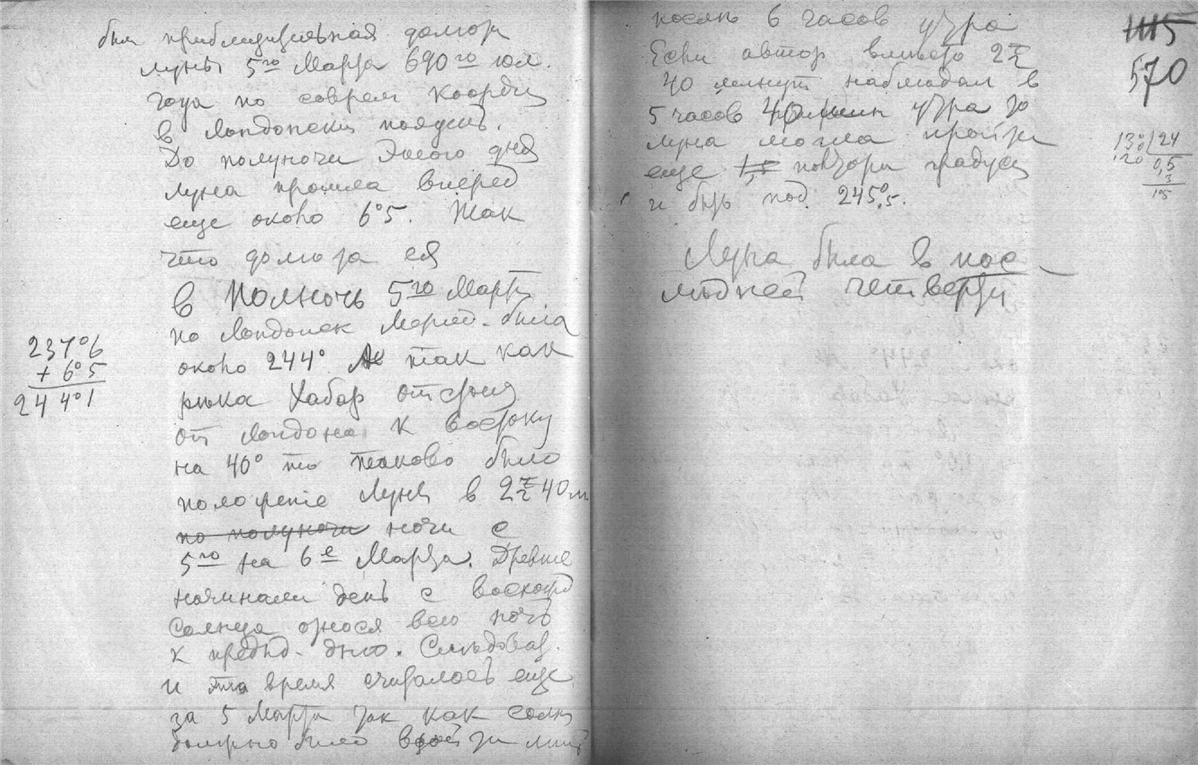 была приблизительная долгота
Луны 5го Марта 690го юл.
года по соврем коорди
в Лондонский полдень.
До полуночи этого дня
луна прошла вперед
еще около 6°5. Так
что долгота ея
в полночь 5го Марта
по Лондонск мерид. была
около 244°. так как
река Хабар отстоит
от Лондона к востоку
на 40° то таково было
положение Луны в 2ч 40м
по полуночи ночи с
5го на 6е Марта. Древние
начинали день с восхода
солнца относя всю ночь
к предыд. дню. Следоват.
и это время считалось еще
за 5 Марта так как солнце
должно было взойти лишь
237°6
+ 6°5
244°1
после 6 часов утра
Если автор вместо 2ч
40 минут наблюдал в
5 часов 40 мин утра то
луна могла пройти
еще полтора градуса
и быть под 245°,5.
Луна была в пос-
ледней четверти
1115
570
13°0 | 24
120 | 0,5
3